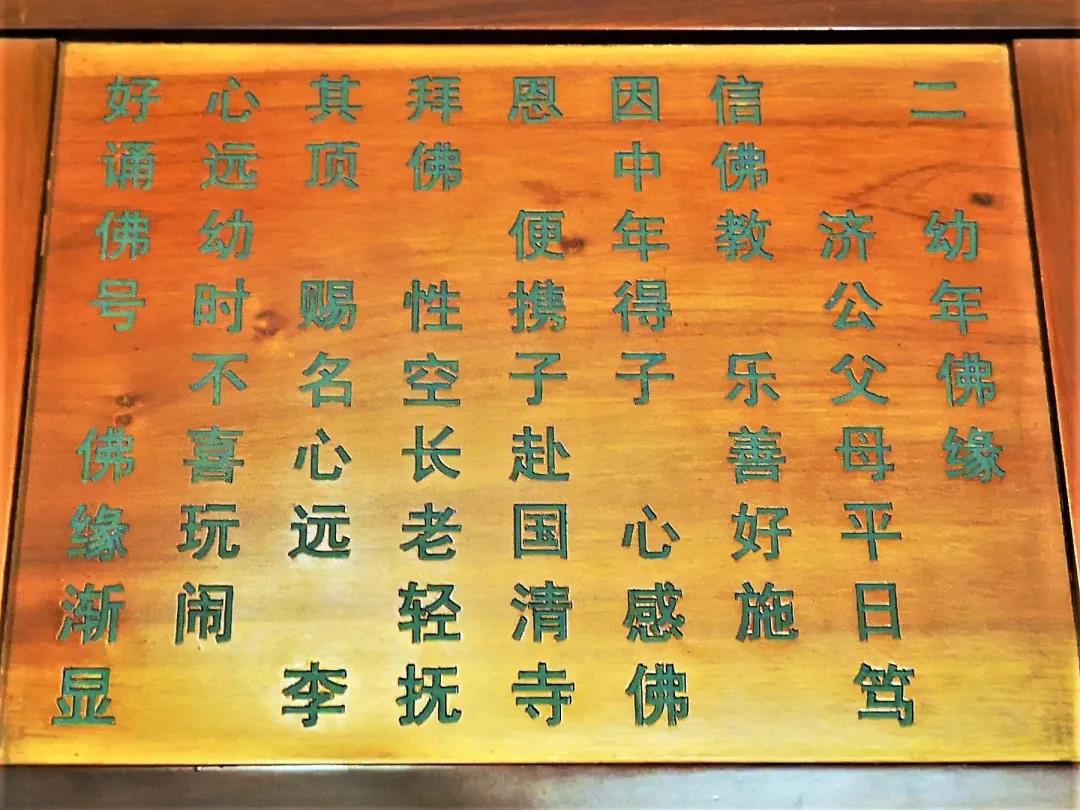 二 幼年佛缘
济公父母平日笃
信佛教 乐善好施
因中年得子 心感佛
恩 便携子赴国清寺
拜佛 性空长老轻抚
其顶 赐名心远 李
心远幼时不喜玩闹
好诵佛号 佛缘渐显